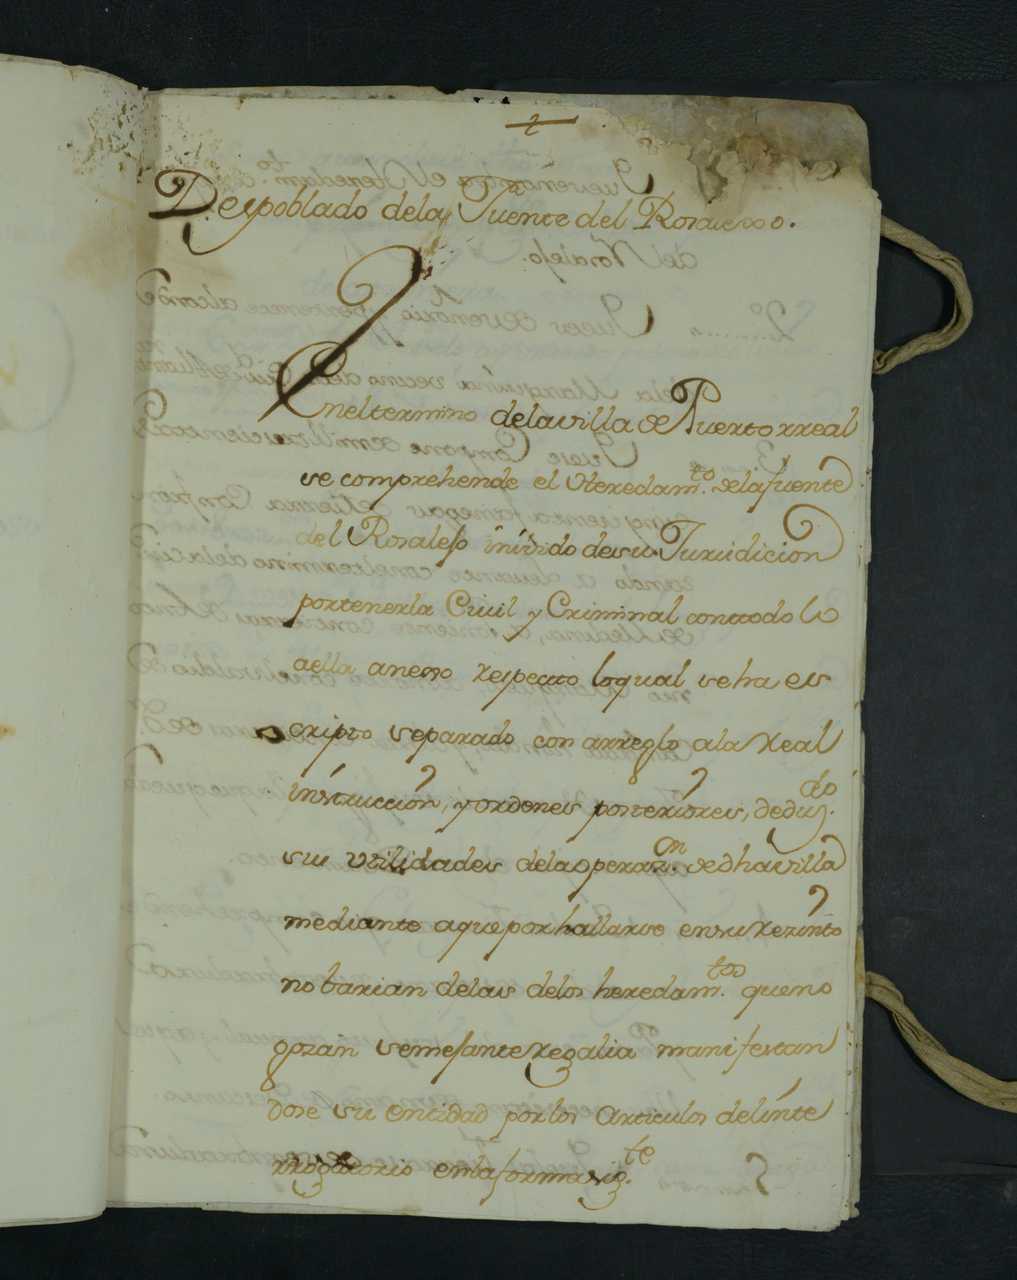 Despoblado dela Fuente del Rosalexo.
En el termino dela villa de Puertorreal
se comprehende el Heredam.to dela fuente
del Rosalejo inivido de su Jurisdicion
por tenerla Civil y Criminal con todo lo
aella anexo respecto lo qual se ha es
cripto separado con arreglo ala Real
instruccion, y ordenes posteriores, deduz.do
sus utilidades delas operaz.on de dha villa
mediante a que por hallarse en su rezinto
notarian delas delos heredam.tos que no
gozan semejante regalia manifestan
dose su entidad por los Articulos del inte
rrogatorio en la forma sig.te